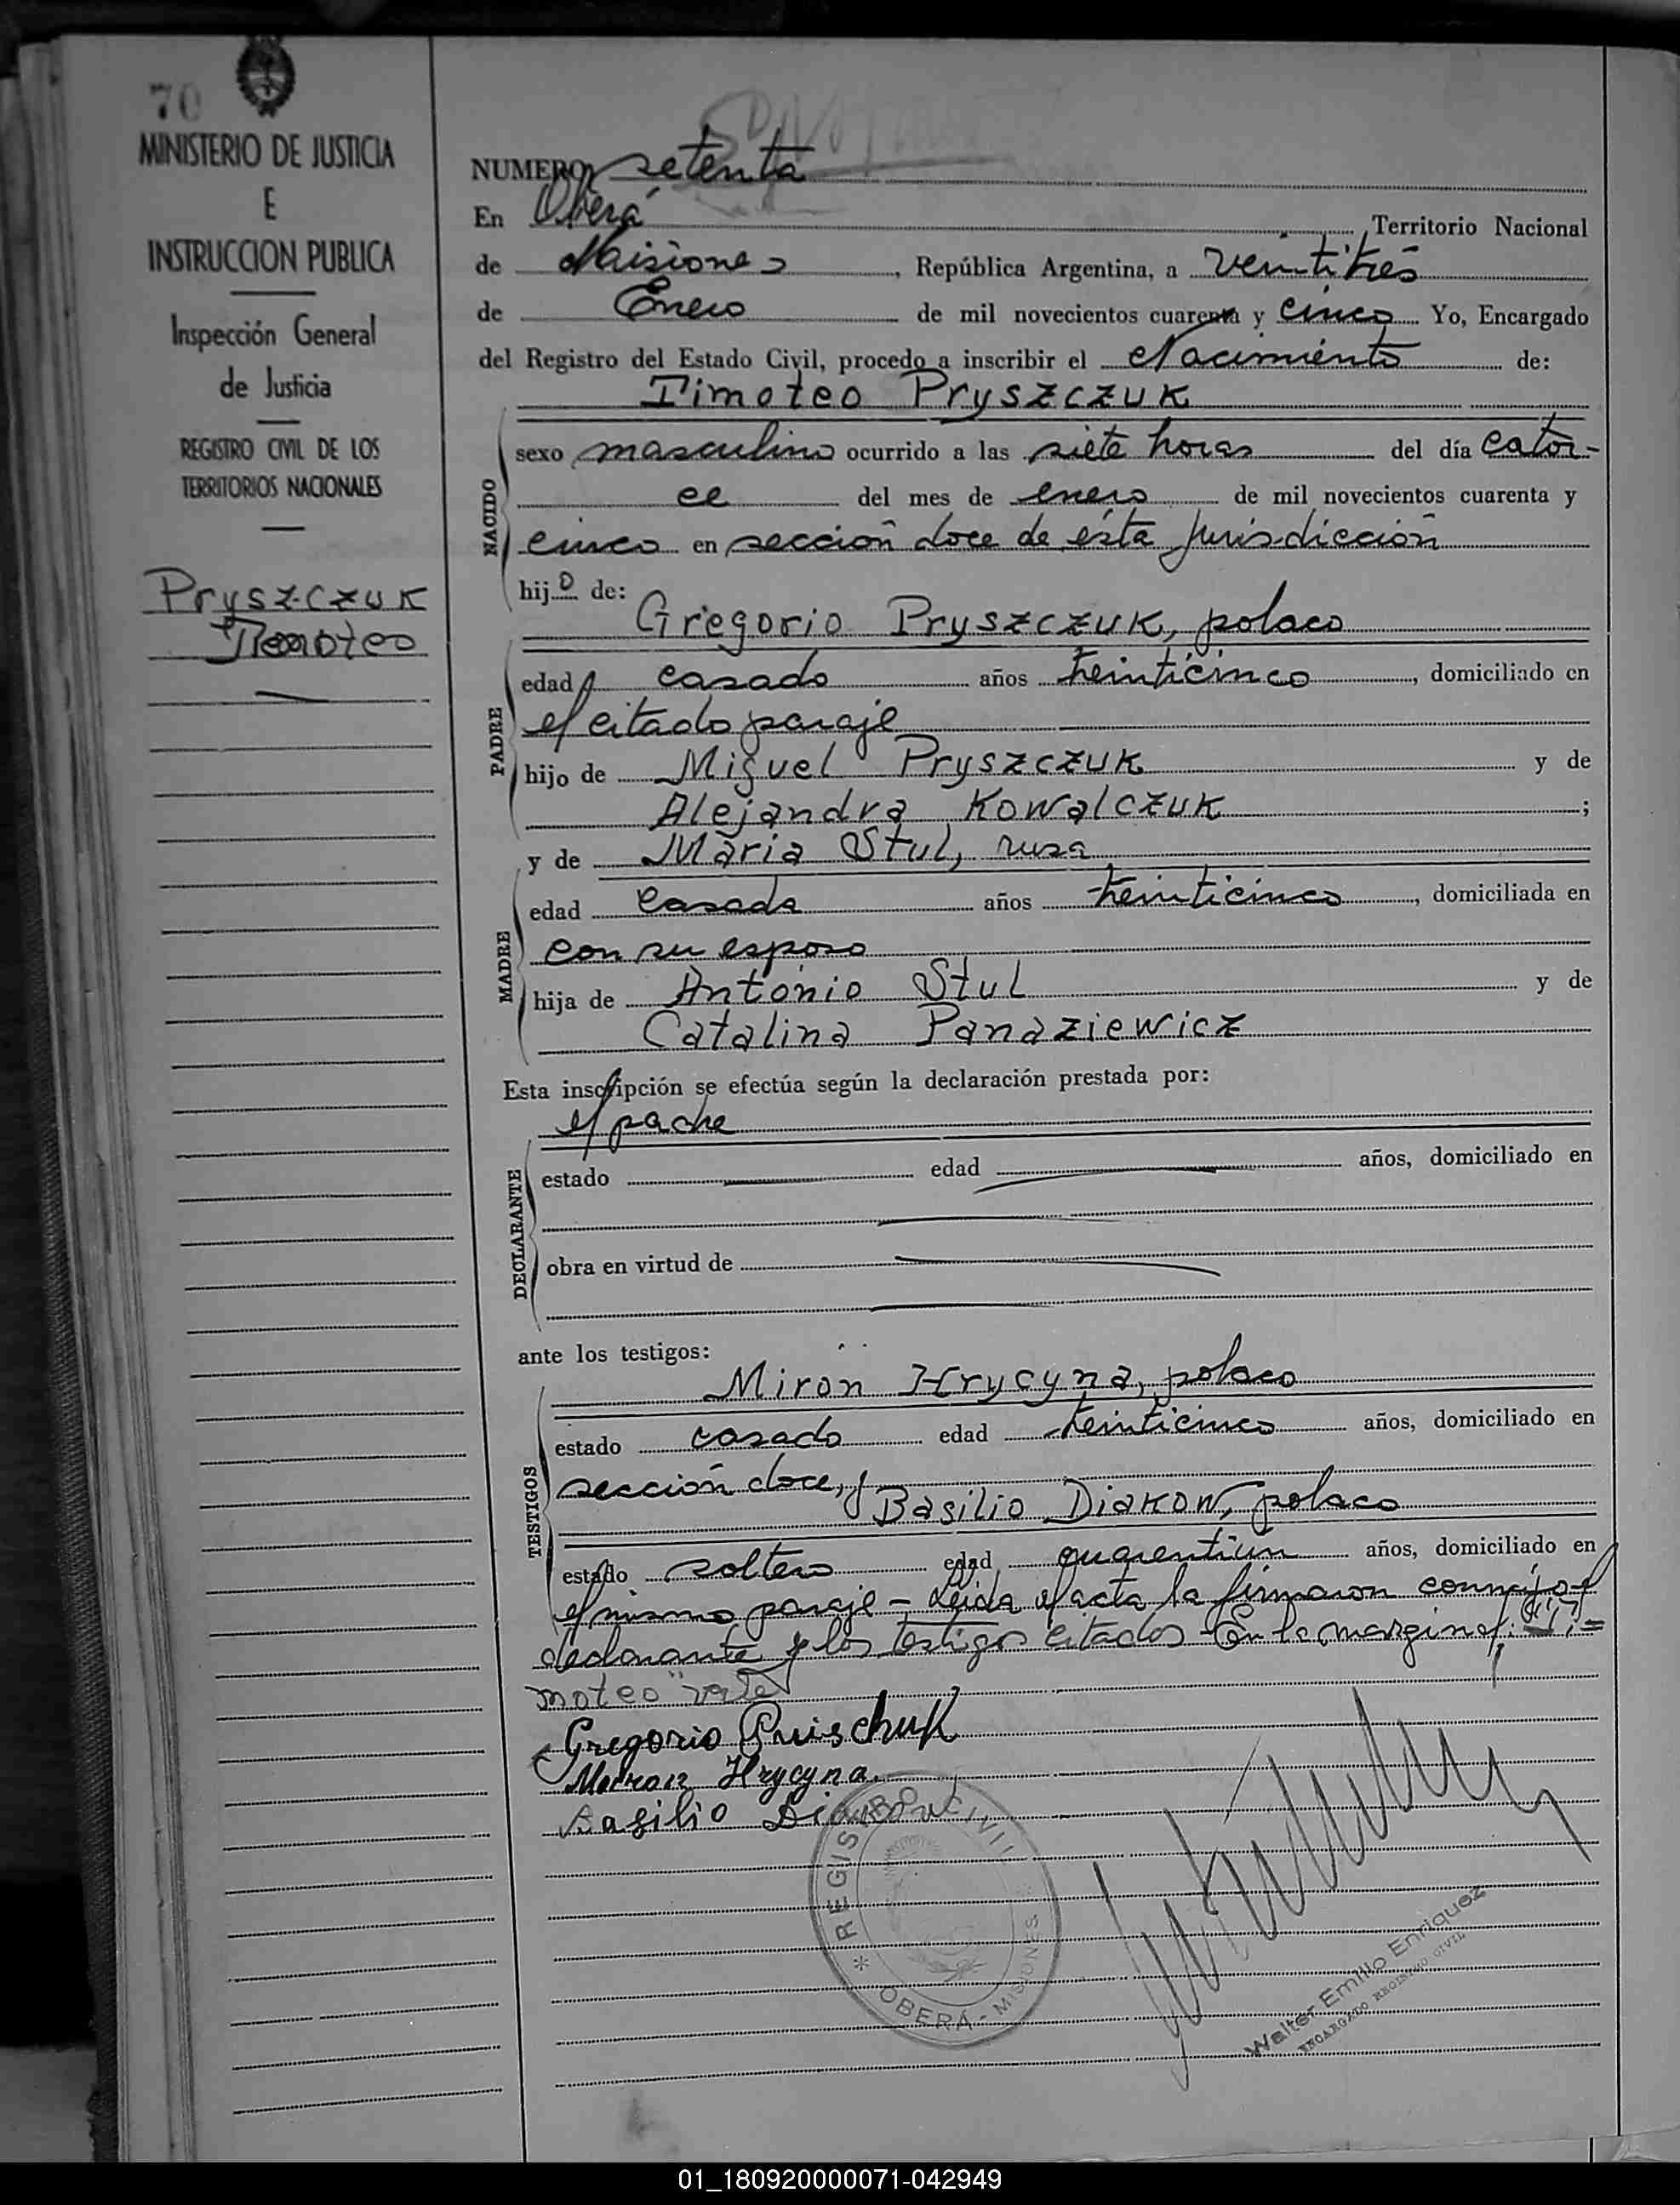 70
MINISTERIO DE JUSTICIA
E
INSTRUCCION PUBLICA
Inspección General
de Justicia
REGISTRO CIVIL DE LOS
TERRITORIOS NACIONALES
Pryszczuk
NUMERO setenta
En Oberá Territorio Nacional
de Misiones, República Argentina, a veintitrés
de Enero de mil novecientos cuarenta y cinco Yo, Encargado
del Registro del Estado Civil, procedo a inscribir el Nacimiento de:
Timoteo Pryszczuk
NACIDO
sexo masculino ocurrido a las siete horas del día cator-
ce del mes de enero de mil novecientos cuarenta y
cinco en sección doce de ésta jurisdicción
hijo de:
Gregorio Pryszczuk, polaco
PADRE
edad casado años treinticinco, domiciliado en
el citado paraje
hijo de Miguel Pryszczuk y de
Alejandra Kowalczuk;
y de María Stul, rusa
MADRE
edad casada años treinticinco, domiciliada en
con su esposo
hija de Antonio Stul y de
Catalina Panaziewicz
Esta inscripción se efectúa según la declaración prestada por:
el padre
DECLARANTE
estado edad años, domiciliado en
obra en virtud de
ante los testigos:
Miron Hrycyna, polaco
TESTIGOS
estado casado edad treinticinco años, domiciliado en
sección doce, y Basilio Diakow, polaco
estado soltero edad quarentiun años, domiciliado en
el mismo paraje - Leida el acta la firmaron conmigo el
declarante y los testigos citados - En la marginal: "Ti=
moteo" vale
Gregorio Pruischuk
Hrycyna
Basilio
REGISTRO CIVIL
OBERÁ - MISIONES
Walter Emilio Enriquez
ENCARGADO REGISTRO CIVIL
01_180920000071-042949